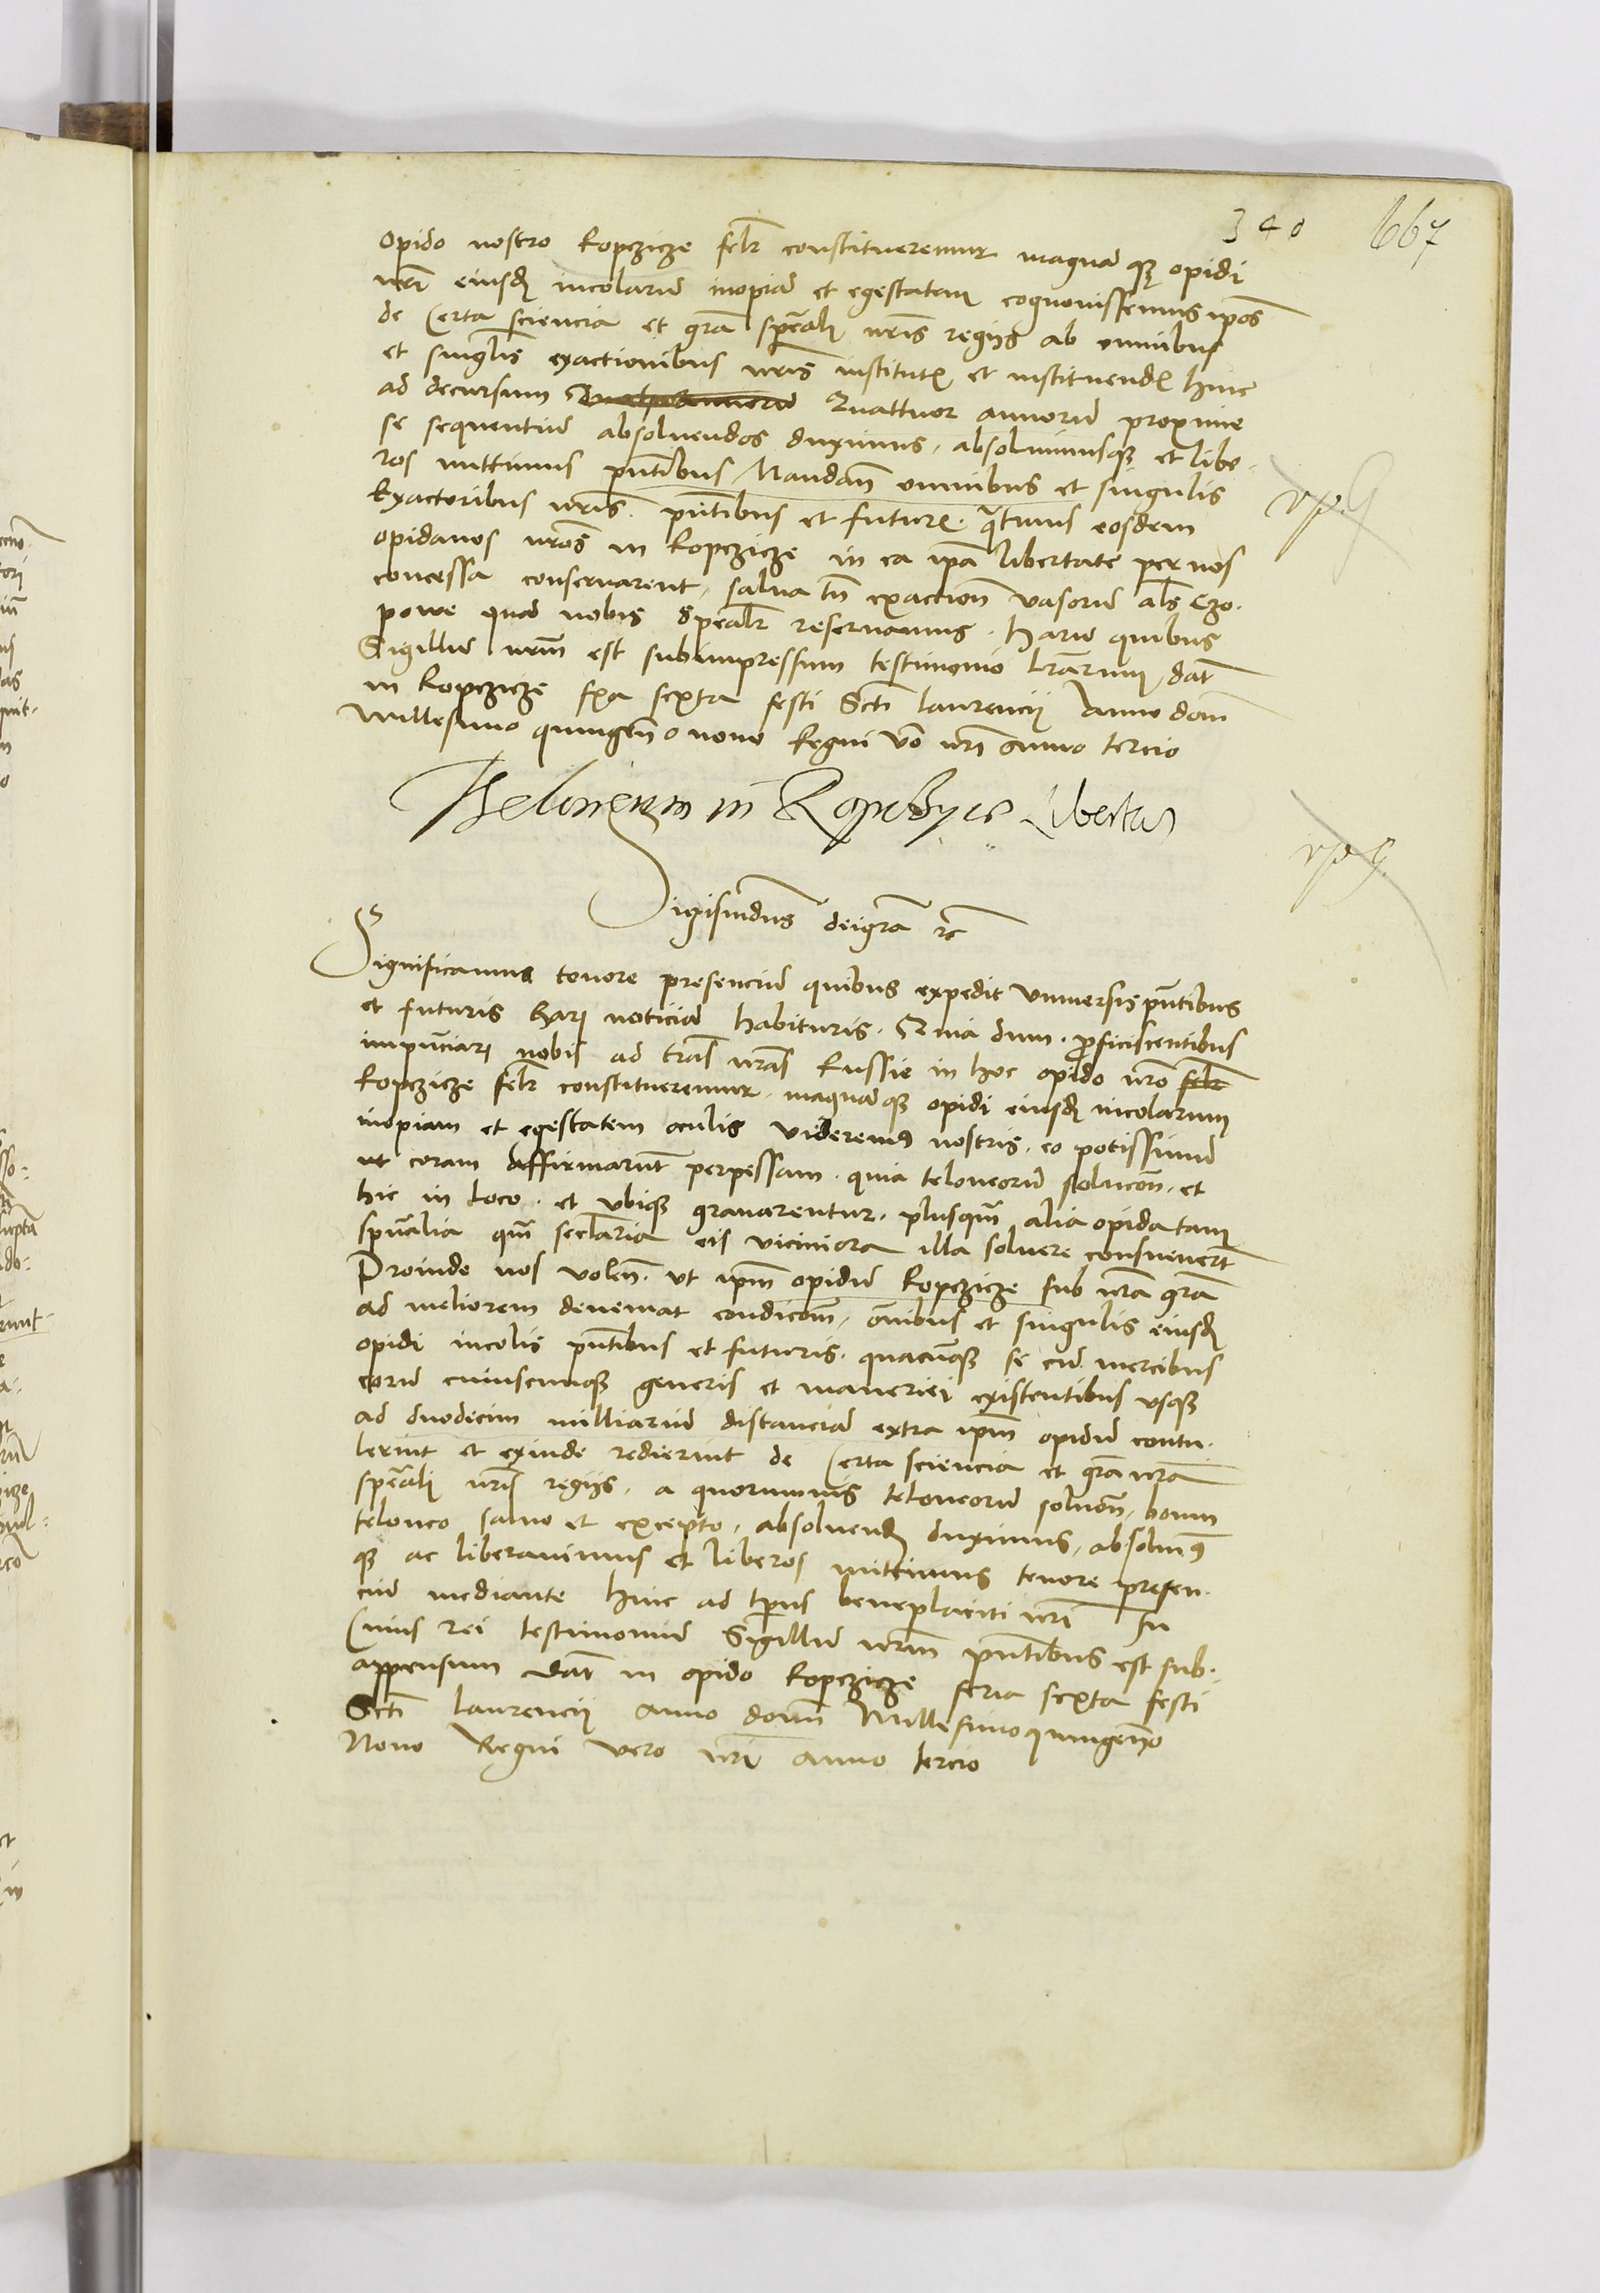 340 667
opido nostro Ropczicze felr constitueremur magnamqz opidi
nri eiusd incolarum inopiam et egestatem cognouissemus ipos
de Certa sciencia et gra speali nris regijs ab omnibus
et singlis exactionibus nris institutis et instituendis hinc
ad decursum Quattuor annorum proxime
se sequentium absoluendos duximus, absoluimusqz et libe-
ros mittimus pntibus, Mandan omnibus et singulis
Exactoribus nris pntibus et futuris quatinus eosdem
opidanos nros in Ropczicze in ea ipa libertate per nos
concessa conseruarent, salua tn exaccion vasorum als Czo-
powe quam nobis spealr reseruamus. harum quibus
Sigillum nrm est subimpressum testimonio lrarum, dat
in Ropczicze fia sexta festi Scti laurencij Anno dom
Millesimo quingeno nono Regni vo nri anno tercio
Theloneum in Ropchycze Libertas
Sigismdus dei gra rc
Significamus tenore presencium quibus expedit vniuersis pntibus
et futuris harum noticiam habituris. Quia dum proficiscentibus
impnciarum nobis ad tras nras Russie in hoc opido nro felr
Ropczicze felr constitueremur, magnamqz opidi eiusd incolarum
inopiam et egestatem oculis videremus nostris, eo potissimum
ut coram affirmarunt perpessam, quia teloneorum solucon, et
hic in loco et vbiqz grauarentur, plusqm alia opida tam
spualia qm seclaria eis viciniora illa soluere consueuert
Proinde nos volen. vt ipm opidum Ropczicze sub nra gra
ad meliorem deueniat condicom, omibus et singulis eiusd
opidi incolis pntibus et futuris quacumqz se cum mercibus
eorum cuiuscumqz generis et maneriei existentibus vsqz
ad duodecim milliarium distanciam extra ipm opidum contu-
lerint et exinde redierint de Certa sciencia et gra nra
speali nris regijs, a quorumuis teloneorum solucon, bonum
teloneo saluo et excepto, absoluend duximus, absoluimus
qz ac liberauimus et liberos mittimus tenore presen-
cium mediante hinc ad tpus beneplaciti nri In
Cuius rei testimonium Sigillum nrm pntibus est sub-
appensum dat in opido Ropczicze feria sexta festi
Scti laurencij Anno domi Millesimo quingeno
Nono Regni vero nri anno tercio